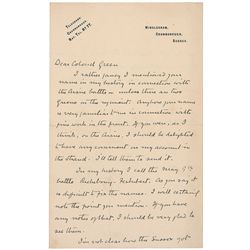 TELEGRAMS:
CROWBOROUGH.
WINDLESHAM,
CROWBOROUGH,
SUSSEX.
Dear Colonel Green
I rather fancy I mentioned your
name in my history in connection with
the Aisne battle unless there are two
Greens in the regiment. Anyhow your name
is very familiar to me in connection with
fine work in the front. If you were, as I
think, on the Aisne, I should be delighted
to have any comment on my account in
the Strand. I'll tell them to send it.
In my history I call the May 9th
battle Richebourg. As you say
it is difficult to fix the names. I will certainly
note the point you mention. If you have
any notes of that I should be very glad to
see them.
I'm not clear how the Sussex got